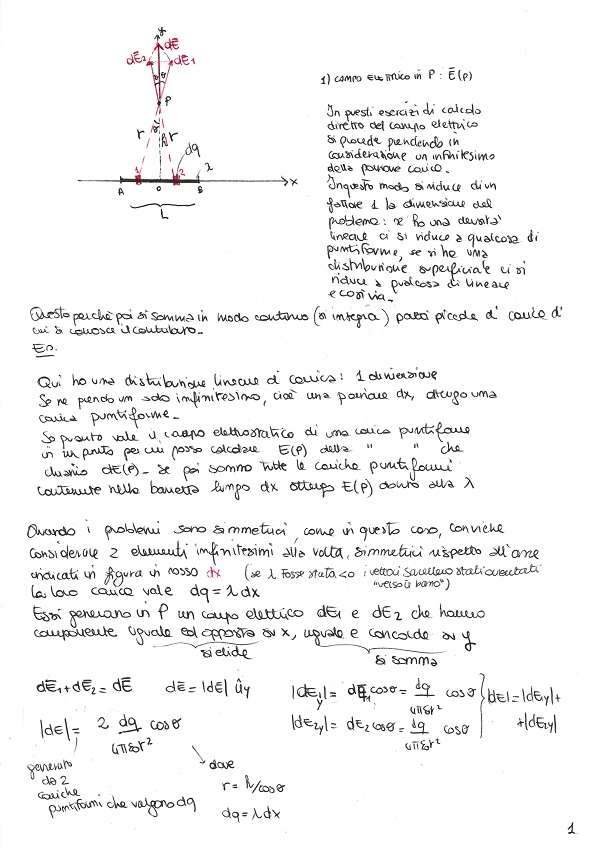 y
dE
dE2
dE1
θ θ
P
r
r
h
dq
1
2
λ
A
O
B
x
L
1) CAMPO ELETTRICO in P : E(P)
In questi esercizi di calcolo
diretto del campo elettrico
si procede prendendo in
considerazione un infinitesimo
della porzione carica.
In questo modo si riduce di un
fattore 1 la dimensione del
problema: se ho una densità
lineare ci si riduce a qualcosa di
puntiforme, se si ha una
distribuzione superficiale ci si
riduce a qualcosa di lineare
e così via.
Questo perché poi si somma in modo continuo (si integra) pezzi piccole d' carica d'
cui si conosce il contributo.
Es.
Qui ho una distribuzione lineare d' carica: 1 dimensione
Se ne prendo un solo infinitesimo, cioè una porzione dx, ottengo una
carica puntiforme.
So quanto vale il campo elettrostatico di una carica puntiforme
in un punto per cui posso calcolare E(P) della " " che
chiamo dE(P). Se poi sommo tutte le cariche puntiformi
contenute nella barretta lungo dx ottengo E(P) dovuto alla λ
Quando i problemi sono simmetrici, come in questo caso, conviene
considerare 2 elementi infinitesimi alla volta, simmetrici rispetto all'asse
indicati in figura in rosso dx (se λ fosse stata <0 i vettori sarebbero stati orientati
"verso il basso")
La loro carica vale dq = λ dx
Essi generano in P un campo elettrico dE1 e dE2 che hanno
componente uguale ed opposta su x, uguale e concorde su y
si elide
si somma
dE1 + dE2 = dE dE = |dE| ûy |dE1y| = dE1 cosθ = dq/4πε0r² cosθ
|dE2y| = dE2 cosθ = dq/4πε0r² cosθ
|dE| = |dE1y| +
+ |dE2y|
|dE| = 2 dq/4πε0r² cosθ
generato
da 2
cariche
puntiformi che valgono dq
dove
r = h/cosθ
dq = λ dx
1